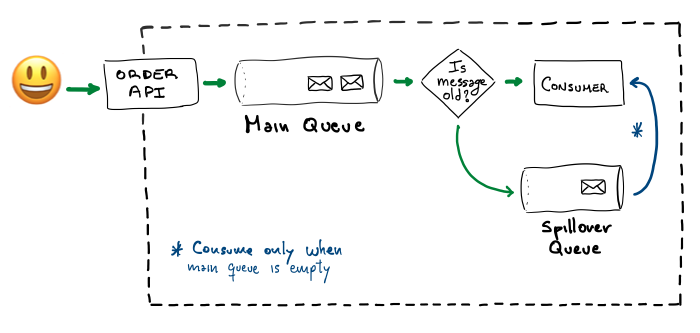 ORDER
API
Main Queue
Is
message
old?
CONSUMER
*
Spillover
Queue
* Consume only when
main queue is empty